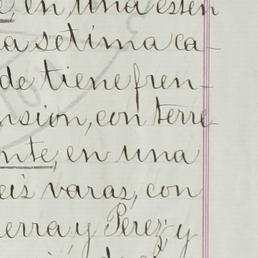 en una esten
a setima ca-
de tiene fren-
nsion, con terre
nte, en una
eis varas, con
erra, y Perez, y